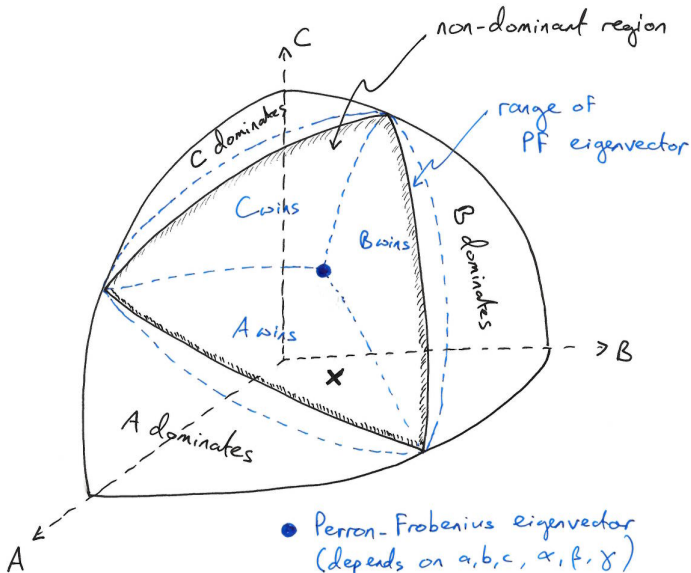 C
non-dominant region
range of
PF eigenvector
C dominates
C wins
B wins
B dominates
A wins
B
x
A dominates
A
Perron-Frobenius eigenvector
(depends on a,b,c, α, β, γ)